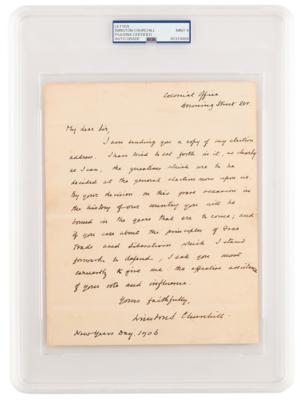 LETTER
WINSTON CHURCHILL
PSA/DNA CERTIFIED
AUTO GRADE
MINT 9
Colonial Office
Downing Street SW.
My dear Sir,
I am sending you a copy of my election
address. I have tried to set forth in it, as clearly
as I can, the questions which are to be
decided at the general election now upon us.
By your decision on this grave occasion in
the history of our country you will be
bound in the years that are to come; and
if you care about the principles of Free
Trade and Liberalism which I stand
forward to defend, I ask you most
earnestly to give me the effective assistance
of your vote and influence.
Yours faithfully,
Winston S. Churchill
New Years Day. 1906